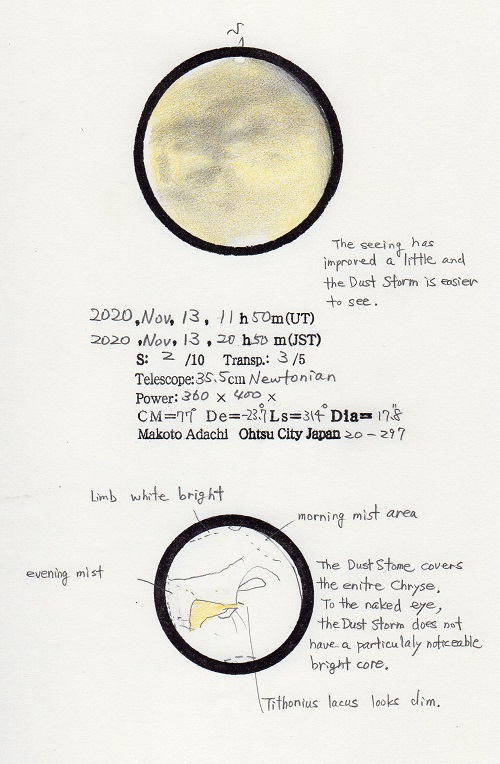 S
The seeing has
improved a little and
the Dust Storm is easier
to see.
2020, Nov, 13, 11 h 50 m (UT)
2020, Nov, 13, 20 h 50 m (JST)
S: 2 /10 Transp.: 3 /5
Telescope: 35.5cm Newtonian
Power: 360 × 400 ×
CM=77° De=-23.7° Ls=314° Dia= 17.8"
Makoto Adachi Ohtsu City Japan 20-297
Limb white bright
morning mist area
evening mist
The Dust Stome covers
the enitre Chryse.
To the naked eye,
the Dust Storm does not
have a particulaly noticeable
bright core.
Tithonius lacus looks dim.